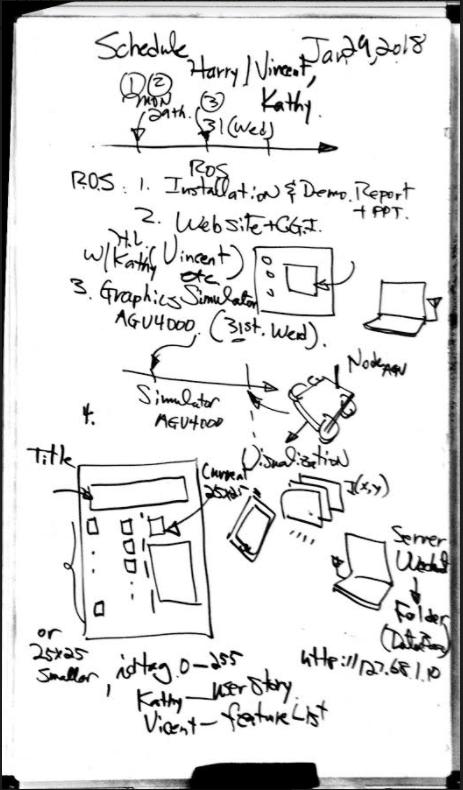 Schedule
Jan 29, 2018
Harry / Vincent,
Kathy
① ②
MON
29th.
③
31 (Wed)
ROS
ROS: 1. Installation & Demo. Report
+ PPT.
2. Website + CGI
H.L.
w/ Kathy, Vincent)
etc
3. Graphics Simulator
AGV4000. (31st. Wed).
Node AGV
Simulator
AGV4000
4.
Visualization
Title
Current
25x25
I(x,y)
Server
Folder
(DataBase)
http://127.68.1.10
or
25x25
Smaller,
0-255
Kathy — User Story
Vicent — feature List